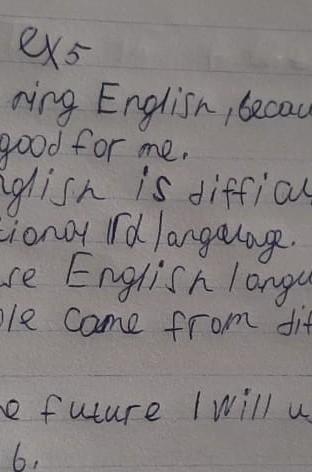 ex5
ning English, becau
good for me.
nglish is difficu
langauage.
se English langu
ple came from dif
e future I will u
6.